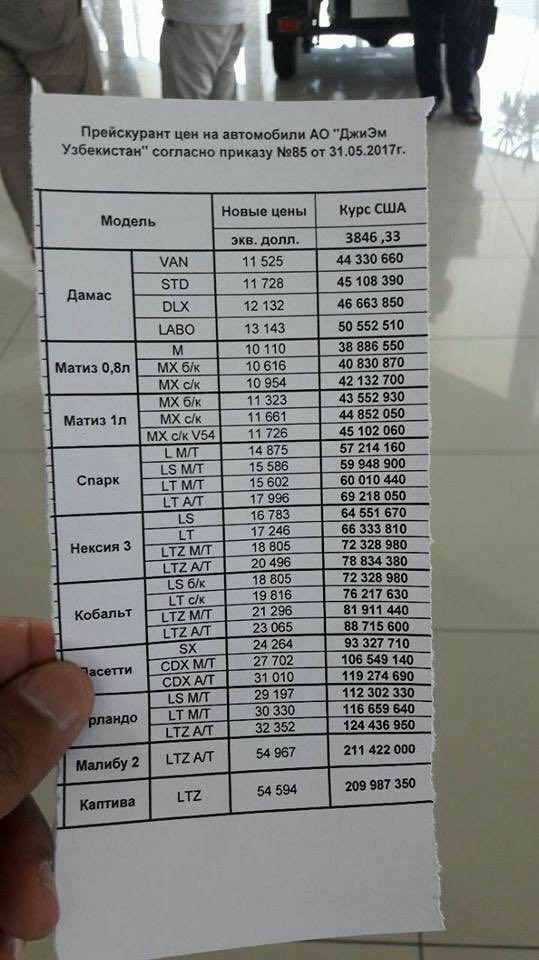 Прейскурант цен на автомобили АО "ДжиЭм
Узбекистан" согласно приказу №85 от 31.05.2017г.
Модель Новые цены Курс США
экв. долл. 3846 ,33
Дамас VAN 11 525 44 330 660
STD 11 728 45 108 390
DLX 12 132 46 663 850
LABO 13 143 50 552 510
Матиз 0,8л М 10 110 38 886 550
МХ б/к 10 616 40 830 870
МХ с/к 10 954 42 132 700
Матиз 1л МХ б/к 11 323 43 552 930
МХ с/к 11 661 44 852 050
МХ с/к V54 11 726 45 102 060
Спарк L M/T 14 875 57 214 160
LS M/T 15 586 59 948 900
LT M/T 15 602 60 010 440
LT A/T 17 996 69 218 050
Нексия 3 LS 16 783 64 551 670
LT 17 246 66 333 810
LTZ M/T 18 805 72 328 980
LTZ A/T 20 496 78 834 380
Кобальт LS б/к 18 805 72 328 980
LT с/к 19 816 76 217 630
LTZ M/T 21 296 81 911 440
LTZ A/T 23 065 88 715 600
асетти SX 24 264 93 327 710
CDX M/T 27 702 106 549 140
CDX A/T 31 010 119 274 690
рландо LS M/T 29 197 112 302 330
LT M/T 30 330 116 659 640
LTZ A/T 32 352 124 436 950
Малибу 2 LTZ A/T 54 967 211 422 000
Каптива LTZ 54 594 209 987 350